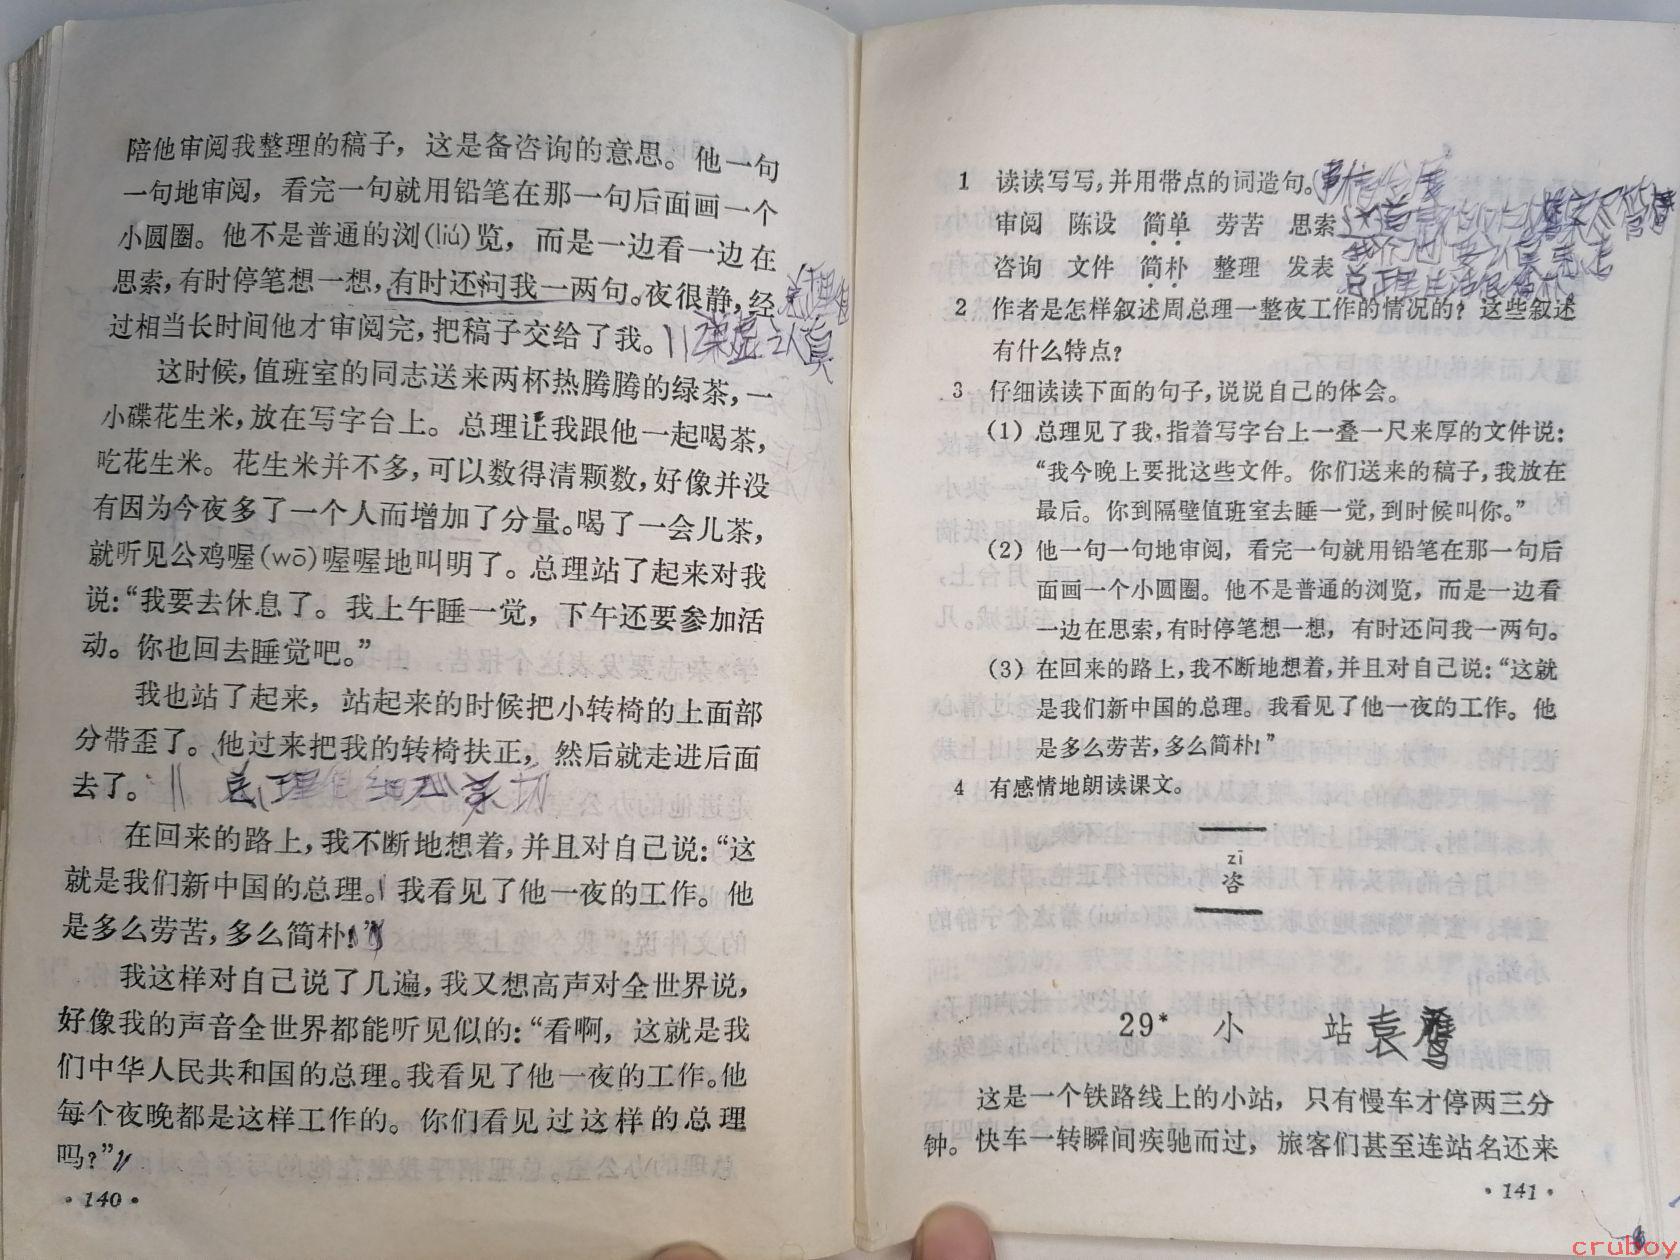 陪他审阅我整理的稿子，这是备咨询的意思。他一句
一句地审阅，看完一句就用铅笔在那一句后面画一个
小圆圈。他不是普通的浏(liú)览，而是一边看一边在
思索，有时停笔想一想，有时还问我一两句。夜很静，经
过相当长时间他才审阅完，把稿子交给了我。
这时候，值班室的同志送来两杯热腾腾的绿茶，一
小碟花生米，放在写字台上。总理让我跟他一起喝茶，
吃花生米。花生米并不多，可以数得清颗数，好像并没
有因为今夜多了一个人而增加了分量。喝了一会儿茶，
就听见公鸡喔(wō)喔喔地叫明了。总理站了起来对我
说：“我要去休息了。我上午睡一觉，下午还要参加活
动。你也回去睡觉吧。”
我也站了起来，站起来的时候把小转椅的上面部
分带歪了。他过来把我的转椅扶正，然后就走进后面
去了。
总理很细心
在回来的路上，我不断地想着，并且对自己说：“这
就是我们新中国的总理。我看见了他一夜的工作。他
是多么劳苦，多么简朴！”
我这样对自己说了几遍，我又想高声对全世界说，
好像我的声音全世界都能听见似的：“看啊，这就是我
们中华人民共和国的总理。我看见了他一夜的工作。他
每个夜晚都是这样工作的。你们看见过这样的总理
吗？”
·140·
1 读读写写，并用带点的词造句。
审阅 陈设 简单 劳苦 思索
咨询 文件 简朴 整理 发表
总理生活很简朴
2 作者是怎样叙述周总理一整夜工作的情况的？这些叙述
有什么特点？
3 仔细读读下面的句子，说说自己的体会。
(1) 总理见了我，指着写字台上一叠一尺来厚的文件说：
“我今晚上要批这些文件。你们送来的稿子，我放在
最后。你到隔壁值班室去睡一觉，到时候叫你。”
(2) 他一句一句地审阅，看完一句就用铅笔在那一句后
面画一个小圆圈。他不是普通的浏览，而是一边看
一边在思索，有时停笔想一想，有时还问我一两句。
(3) 在回来的路上，我不断地想着，并且对自己说：“这就
是我们新中国的总理。我看见了他一夜的工作。他
是多么劳苦，多么简朴！”
4 有感情地朗读课文。
zī
咨
29* 小 站 袁鹰
这是一个铁路线上的小站，只有慢车才停两三分
钟。快车一转瞬间疾驰而过，旅客们甚至连站名还来
·141·
cruboy